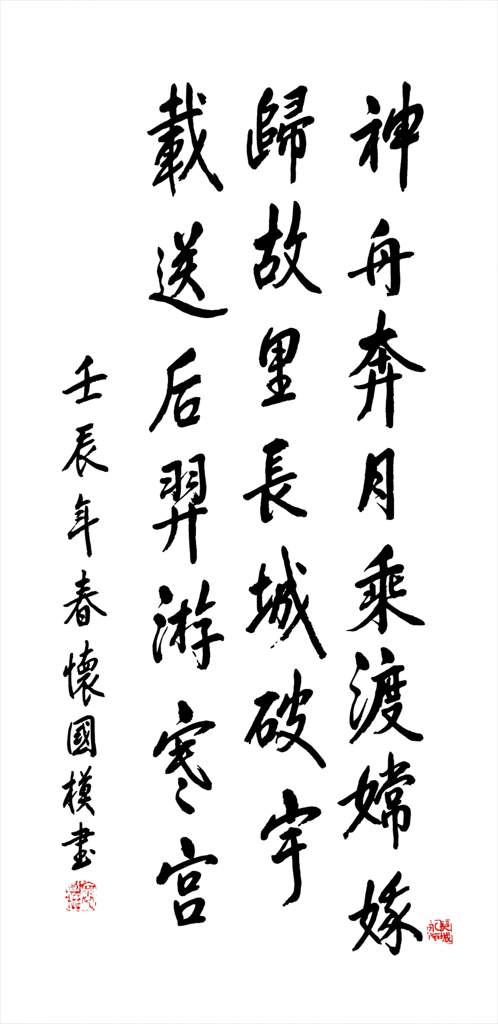 神舟奔月乘渡嫦娥
歸故里長城破宇
載送后羿游寒宫
壬辰年春懷國模書